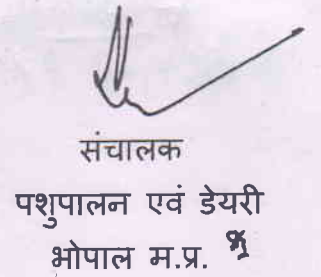 संचालक
पशुपालन एवं डेयरी
भोपाल म.प्र.